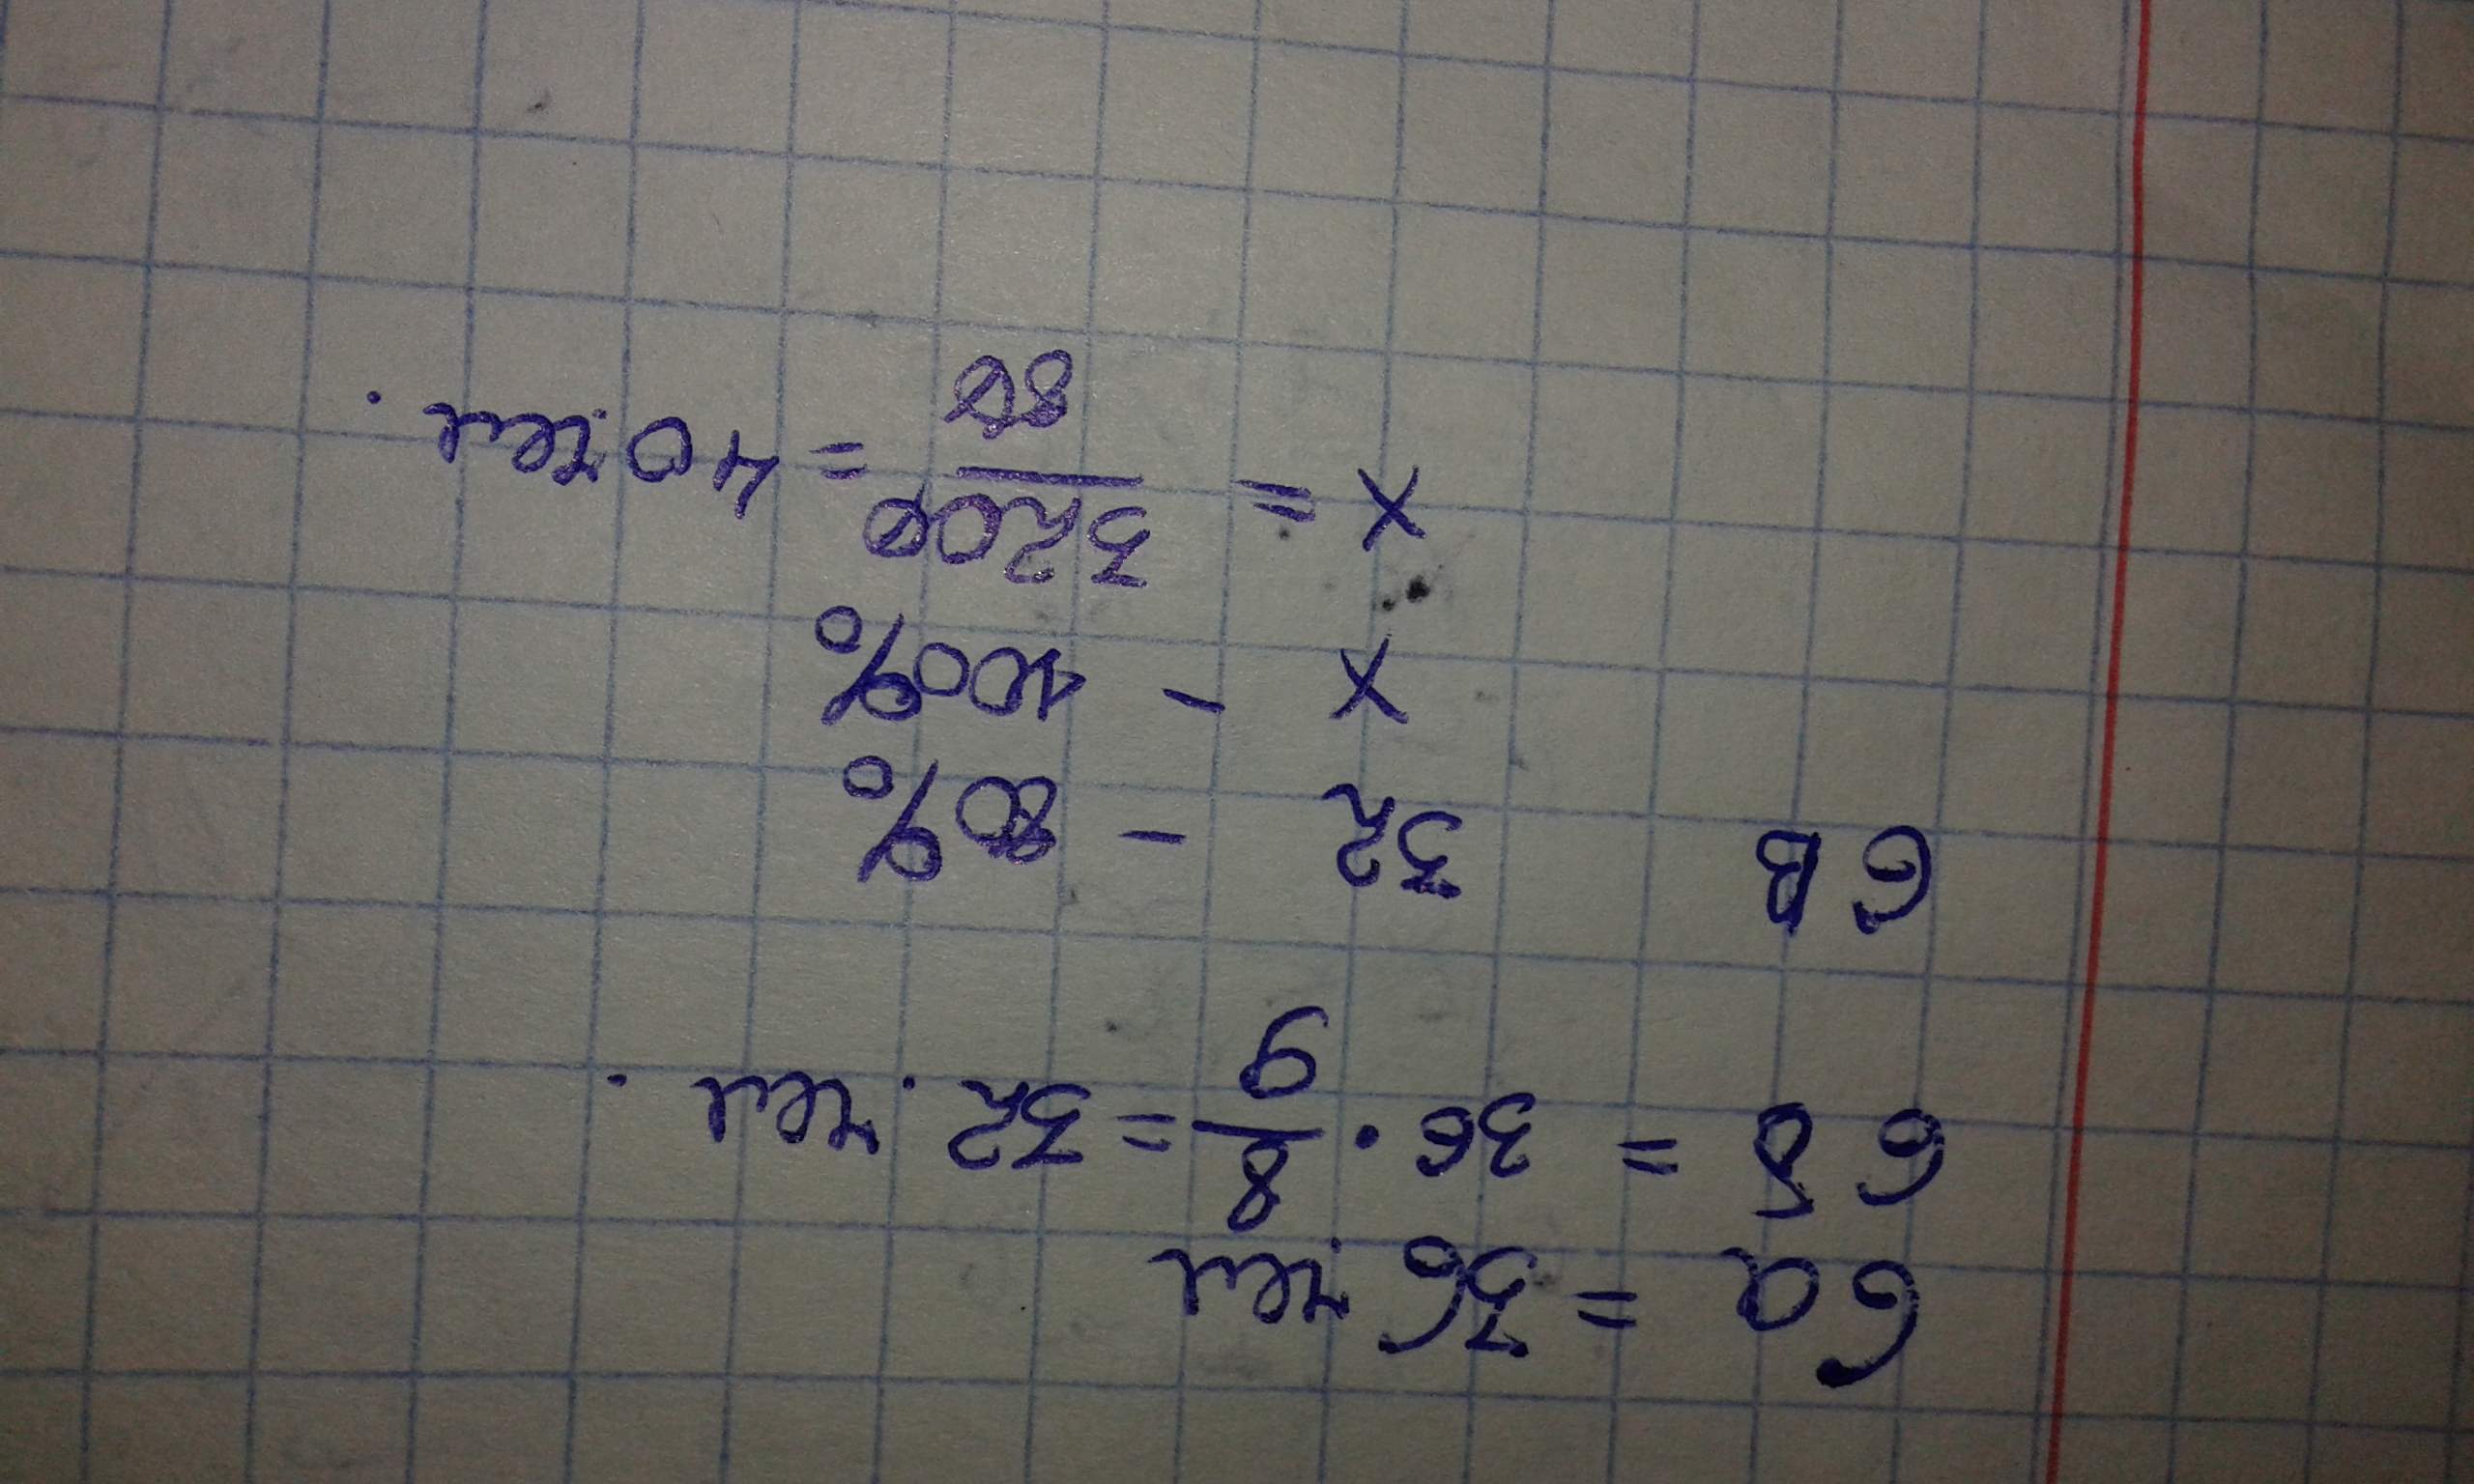 6а = 36 чел
6б = 36 · 8/9 = 32. чел.
6в 32 - 80%
х - 100%
х = 3200/80 = 40 чел.